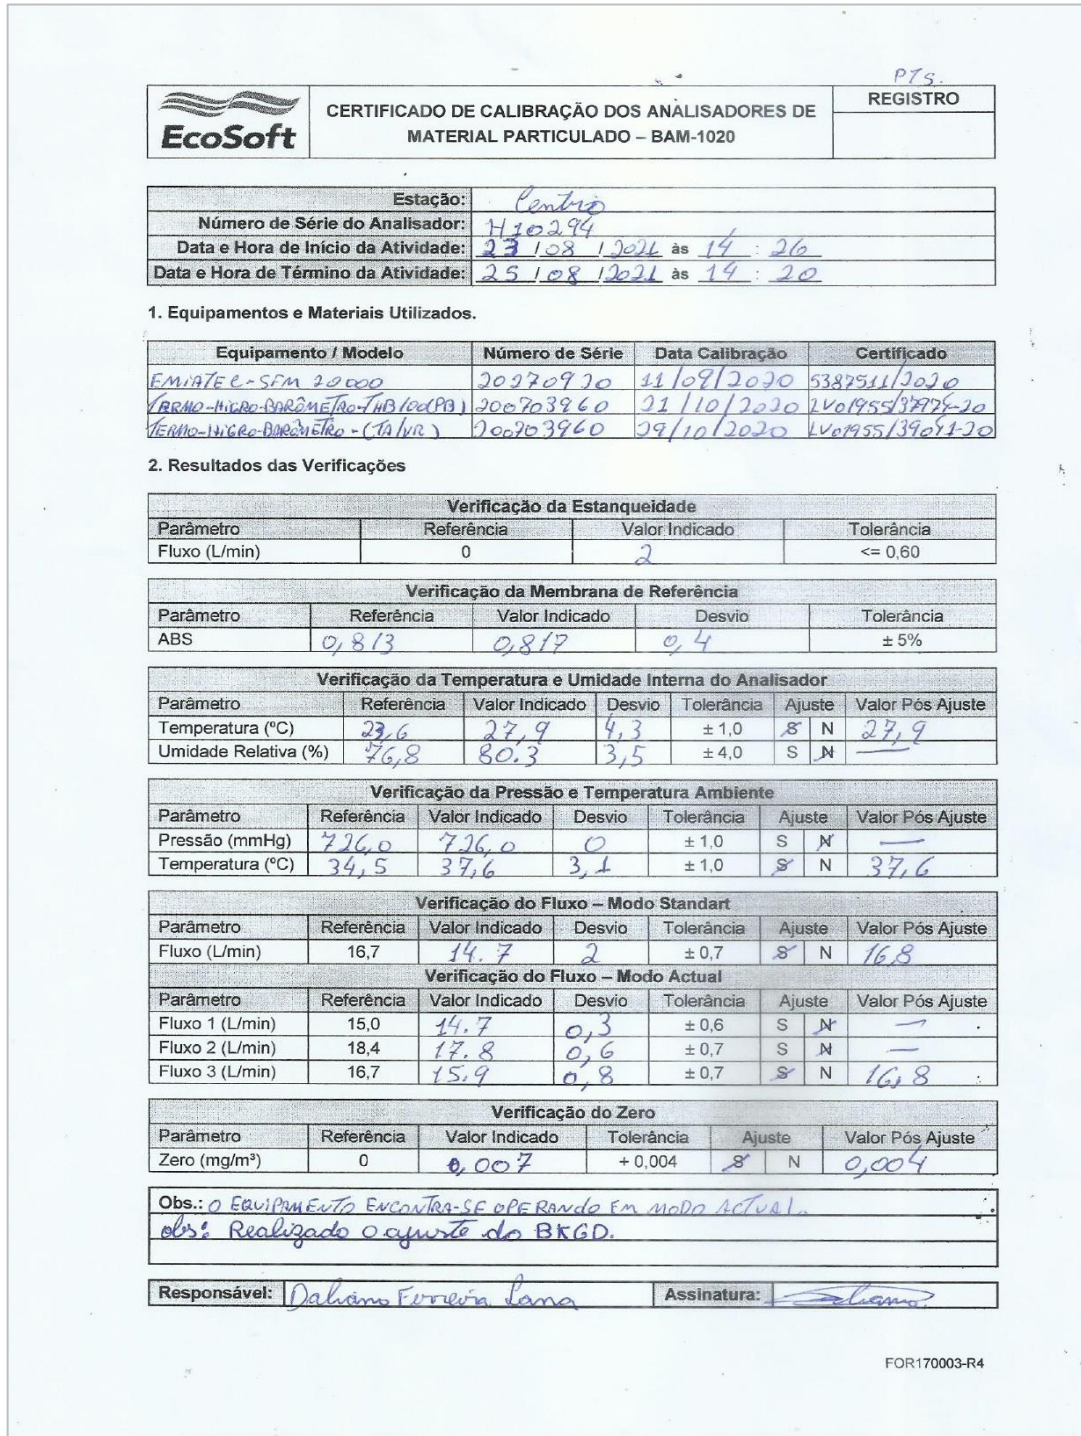 PTS.
EcoSoft
CERTIFICADO DE CALIBRAÇÃO DOS ANALISADORES DE
MATERIAL PARTICULADO – BAM-1020
REGISTRO
Estação: Centro
Número de Série do Analisador: H10294
Data e Hora de Início da Atividade: 23 / 08 / 2021 às 14 : 26
Data e Hora de Término da Atividade: 25 / 08 / 2021 às 14 : 20
1. Equipamentos e Materiais Utilizados.
Equipamento / Modelo Número de Série Data Calibração Certificado
EMIATEC-SFM 20000 20270920 11/09/2020 5387511/2020
TERMO-HIGRO-BARÔMETRO-THB100(PB) 200703960 21/10/2020
TERMO-HIGRO-BARÔMETRO-(TA/UR) 200703960 29/10/2020
2. Resultados das Verificações
Verificação da Estanqueidade
Parâmetro Referência Valor Indicado Tolerância
Fluxo (L/min) 0 2 <= 0,60
Verificação da Membrana de Referência
Parâmetro Referência Valor Indicado Desvio Tolerância
ABS 0,813 0,817 0,4 ± 5%
Verificação da Temperatura e Umidade Interna do Analisador
Parâmetro Referência Valor Indicado Desvio Tolerância Ajuste Valor Pós Ajuste
Temperatura (ºC) 23,6 27,9 4,3 ± 1,0 S N 27,9
Umidade Relativa (%) 76,8 80.3 3,5 ± 4,0 S N —
Verificação da Pressão e Temperatura Ambiente
Parâmetro Referência Valor Indicado Desvio Tolerância Ajuste Valor Pós Ajuste
Pressão (mmHg) 726,0 726,0 0 ± 1,0 S N —
Temperatura (ºC) 34,5 37,6 3,1 ± 1,0 S N 37,6
Verificação do Fluxo – Modo Standart
Parâmetro Referência Valor Indicado Desvio Tolerância Ajuste Valor Pós Ajuste
Fluxo (L/min) 16,7 14.7 2 ± 0,7 S N 16,8
Verificação do Fluxo – Modo Actual
Parâmetro Referência Valor Indicado Desvio Tolerância Ajuste Valor Pós Ajuste
Fluxo 1 (L/min) 15,0 14.7 0,3 ± 0,6 S N —
Fluxo 2 (L/min) 18,4 17.8 0,6 ± 0,7 S N —
Fluxo 3 (L/min) 16,7 15.9 0,8 ± 0,7 S N 16,8
Verificação do Zero
Parâmetro Referência Valor Indicado Tolerância Ajuste Valor Pós Ajuste
Zero (mg/m³) 0 0,007 + 0,004 S N 0,004
Obs.: O EQUIPAMENTO ENCONTRA-SE OPERANDO EM MODO ACTUAL.
obs: Realizado o ajuste do BKGD.
Responsável: Daliano Ferreira Lana Assinatura:
FOR170003-R4